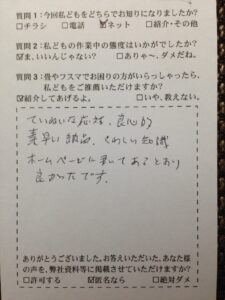 質問1:今回私どもをどちらでお知りになりましたか?
□チラシ □電話 ☑ネット □紹介・その他
質問2:私どもの作業中の態度はいかがでしたか?
☑ま、いいんじゃない? □ありゃ〜、ダメだね。
質問3:畳やフスマでお困りの方がいらっしゃったら、
私どもをご推薦いただけますか?
☑紹介してあげるよ。 □いや、教えない。
ていねいな応対、良心的
素早い納品、くわしい知識
ホームページに書いてあるとおり
良かったです。
ありがとうございました。お答えいただいた、あなた様
の声を、弊社資料等に掲載させていただけますか?
□許可する ☑匿名なら □絶対ダメ